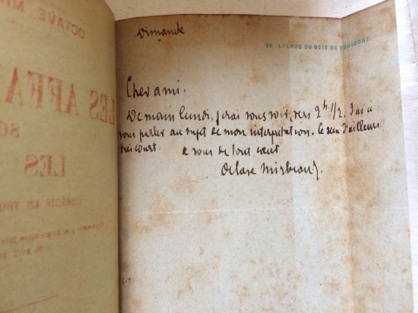 Dimanche
84, AVENUE DU BOIS DE BOULOGNE
Cher ami.
Demain lundi, j'irai vous voir, vers 2h 1/2. J'ai à
vous parler au sujet de mon interprétation. Ce sera d'ailleurs
très court.
à vous de tout cœur
Octave Mirbeau.
OCTAVE MI
LES AFFA
SO
LES
COMÉDIE EN TRO